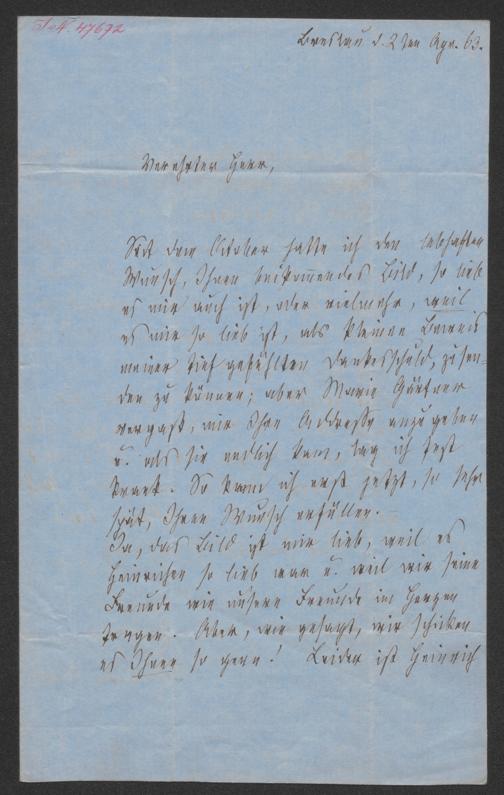 I.N. 47692
Breslau d. 2ten Apr. 63.
Verehrter Herr,
Seit dem October hatte ich den lebhaften
Wunsch, Ihnen beikommendes Bild, so lieb
es mir auch ist, oder vielmehr, weil
es mir so lieb ist, als kleinen Beweis
meiner tief gefühlten Dankesschuld, zusen-
den zu können; aber Marie Gärtner
vergaß, mir Ihre Addresse anzugeben
u. als sie endlich kam, lag ich fest
krank. So kann ich erst jetzt, so sehr
spät, Ihren Wunsch erfüllen. —
Ja, das Bild ist mir lieb, weil es
Heinrichen so lieb war u. weil wir seine
Freunde wie unsere Freunde im Herzen
tragen. Aber, wie gesagt, wir schicken
es Ihnen so gern! Leider ist Heinrich